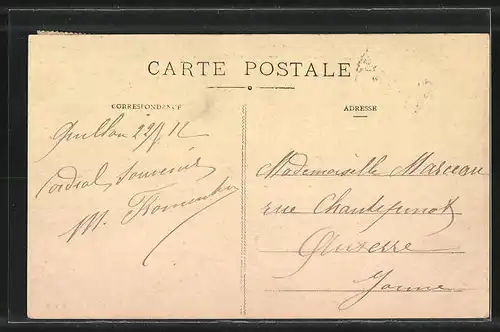 CARTE POSTALE
CORRESPONDANCE
ADRESSE
Guillon 22/8/12
Cordial Souvenir
M.
Mademoiselle Marceau
rue Chantepinot
Auxerre
Yonne